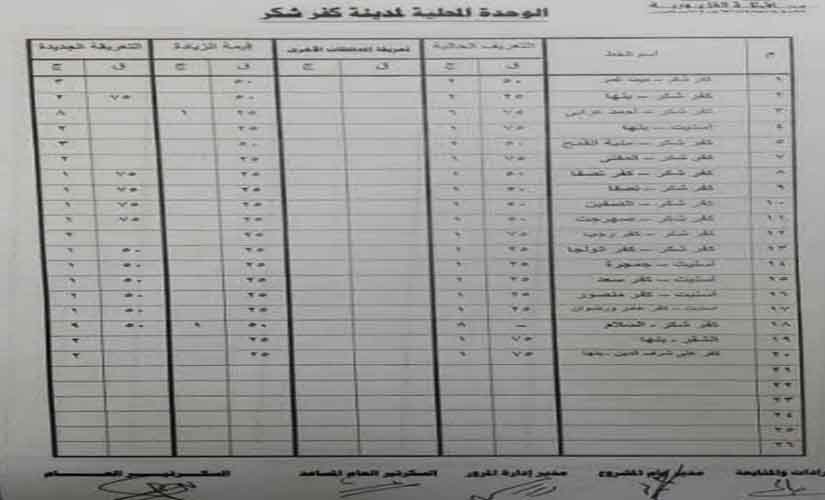 الوحدة المحلية لمدينة كفر شكر
م اسم الخط التعريف الحالية تعريفة المحافظات الأخرى قيمة الزيادة التعريفة الجديدة
ق ج ق ج ق ج ق ج
١ كفر شكر – ميت غمر ٥٠ ٢ ٥٠ ٣
٢ كفر شكر – بنها ٢٥ ٢ ٥٠ ٧٥ ٢
٣ كفر شكر – أحمد عرابى ٧٥ ٦ ٢٥ ١ ٨
٤ اسنيت – بنها ٧٥ ١ ٢٥ ٢
٥ كفر شكر – منية القمح ٥٠ ٢ ٥٠ ٣
٧ كفر شكر – ٧٥ ١ ٢٥ ٢
٨ كفر شكر – كفر تصفا ٥٠ ١ ٢٥ ٧٥ ١
٩ كفر شكر – تصفا ٥٠ ١ ٢٥ ٧٥ ١
١٠ كفر شكر – الصفين ٥٠ ١ ٢٥ ٧٥ ١
١١ كفر شكر – صهرجت ٥٠ ١ ٢٥ ٧٥ ١
١٢ كفر شكر – كفر رجب ٧٥ ١ ٢٥ ٢
١٣ كفر شكر – كفر الولجا ٢٥ ١ ٢٥ ٥٠ ١
١٤ اسنيت – جمجرة ٢٥ ١ ٢٥ ٥٠ ١
١٥ اسنيت – كفر سعد ٢٥ ١ ٢٥ ٥٠ ١
١٦ اسنيت – كفر منصور ٢٥ ١ ٢٥ ٥٠ ١
١٧ اسنيت – كفر عامر ورضوان ٢٥ ١ ٢٥ ٥٠ ١
١٨ كفر شكر - السلام – ٨ ٥٠ ١ ٥٠ ٩
١٩ الشقر - بنها ٧٥ ١ ٢٥ ٢
٢٠ كفر على شرف الدين - بنها ٧٥ ١ ٢٥ ٢
٢١
٢٢
٢٣
٢٤
٢٥
٢٦
والمتابعة مدير عام المشروع مدير إدارة المرور السكرتير العام المساعد السكرتير العام